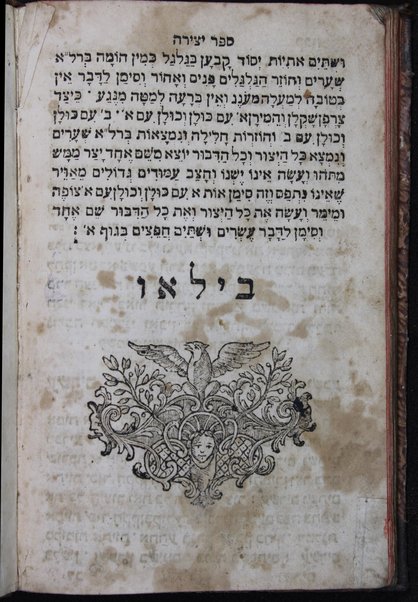 ספר יצירה
ושתים אתיות, יסוד קבען בגלגל כמין חומה ברל"א
שערים וחוזר הגלגלים פנים ואחור וסימן לדבר אין
בטובה למעלה מענג ואין ברעה למטה מנגע כיצד
צרפן שקלן והמירן א' עם כולן וכולן עם א' ב' עם כולן
וכולן עם ב' וחוזרות חלילה ונמצאות ברל"א שערים
ונמצא כל היצור וכל הדבור יוצא משם אחד יצר ממש
מתהו ועשה אינו ישנו וחצב עמודים גדולים מאויר
שאינו נתפס וזה סימן אות א עם כולן וכולן עם א צופה
ומימר ועשה את כל היצור ואת כל הדבור שם אחד
וסימן לדבר עשרים ושתים חפצים בגוף א' :
בילאו